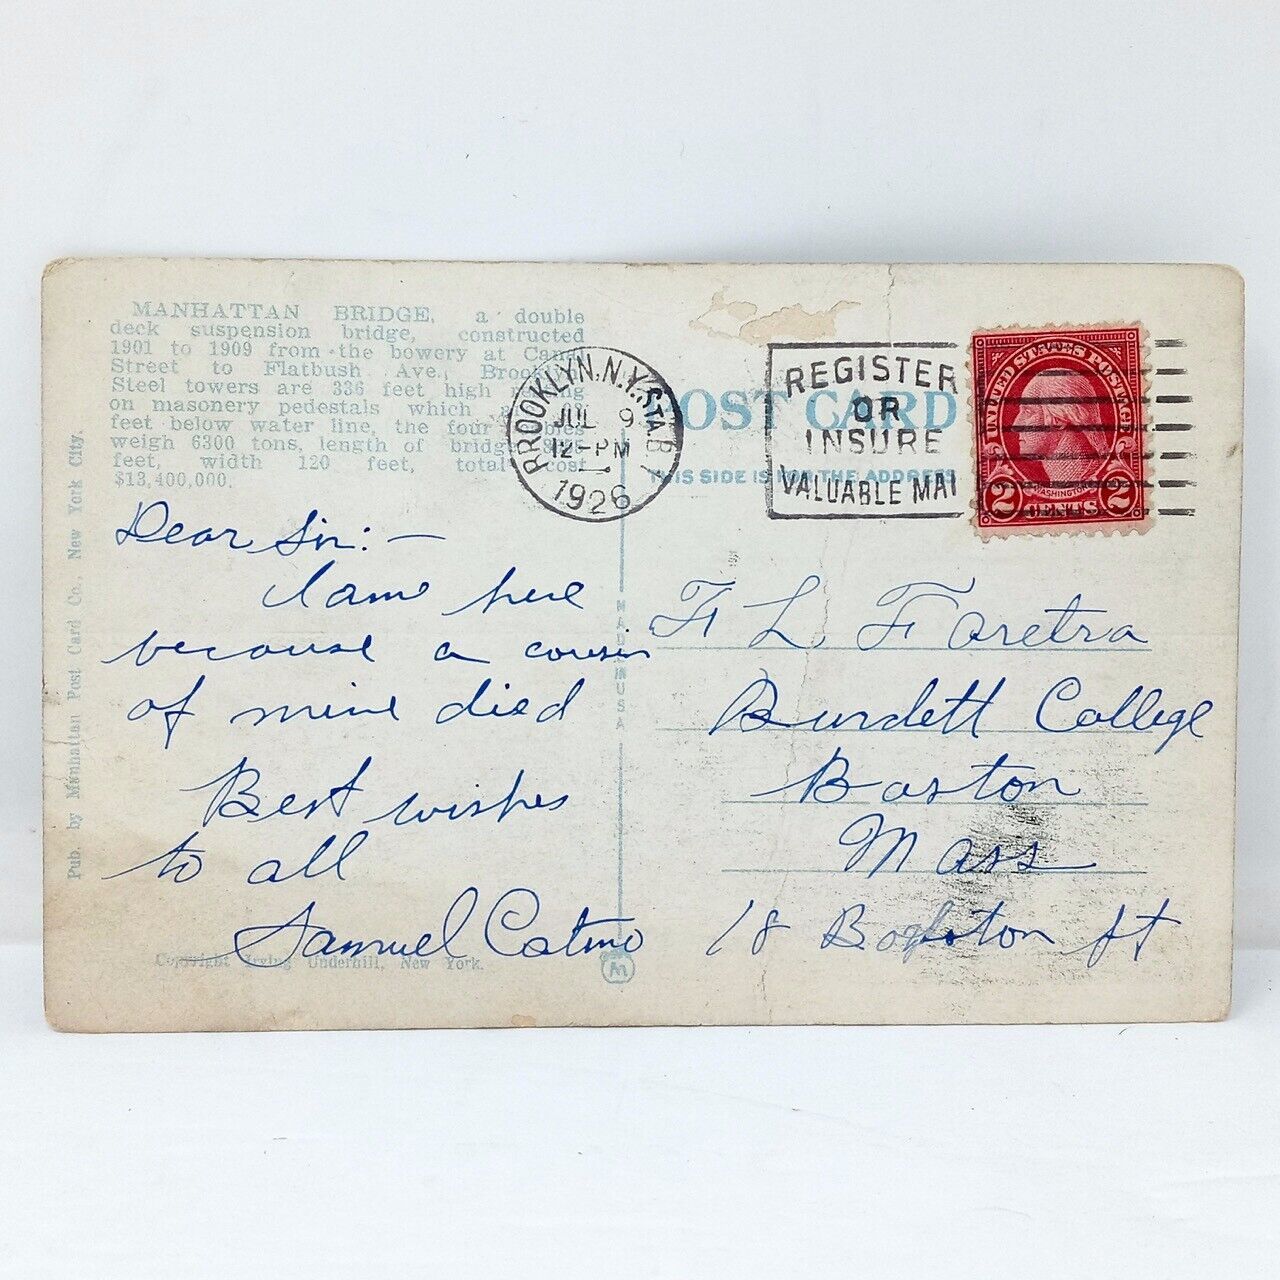 MANHATTAN BRIDGE, a double
deck suspension bridge, constructed
1901 to 1909 from the bowery at Canal
Street to Flatbush Ave., Brooklyn
Steel towers are 336 feet high
on masonery pedestals which
feet below water line, the four
weigh 6300 tons, length of bridge
feet, width 120 feet, total cost
$13,400,000.
Pub. by Manhattan Post Card Co., New York City.
BROOKLYN, N.Y. STA. B
JUL 9
12-PM
1926
POST CARD
THIS SIDE IS FOR THE ADDRESS
REGISTER
OR
INSURE
VALUABLE MAI
UNITED STATES POSTAGE
WASHINGTON
2 CENTS 2
MADE IN USA
Dear Sir:—
I came here
because a cousin
of mine died
Best wishes
to all
Samuel
F L
Burdett College
Boston
Mass
18 Boylston St
Copyright Irving Underhill, New York.
M